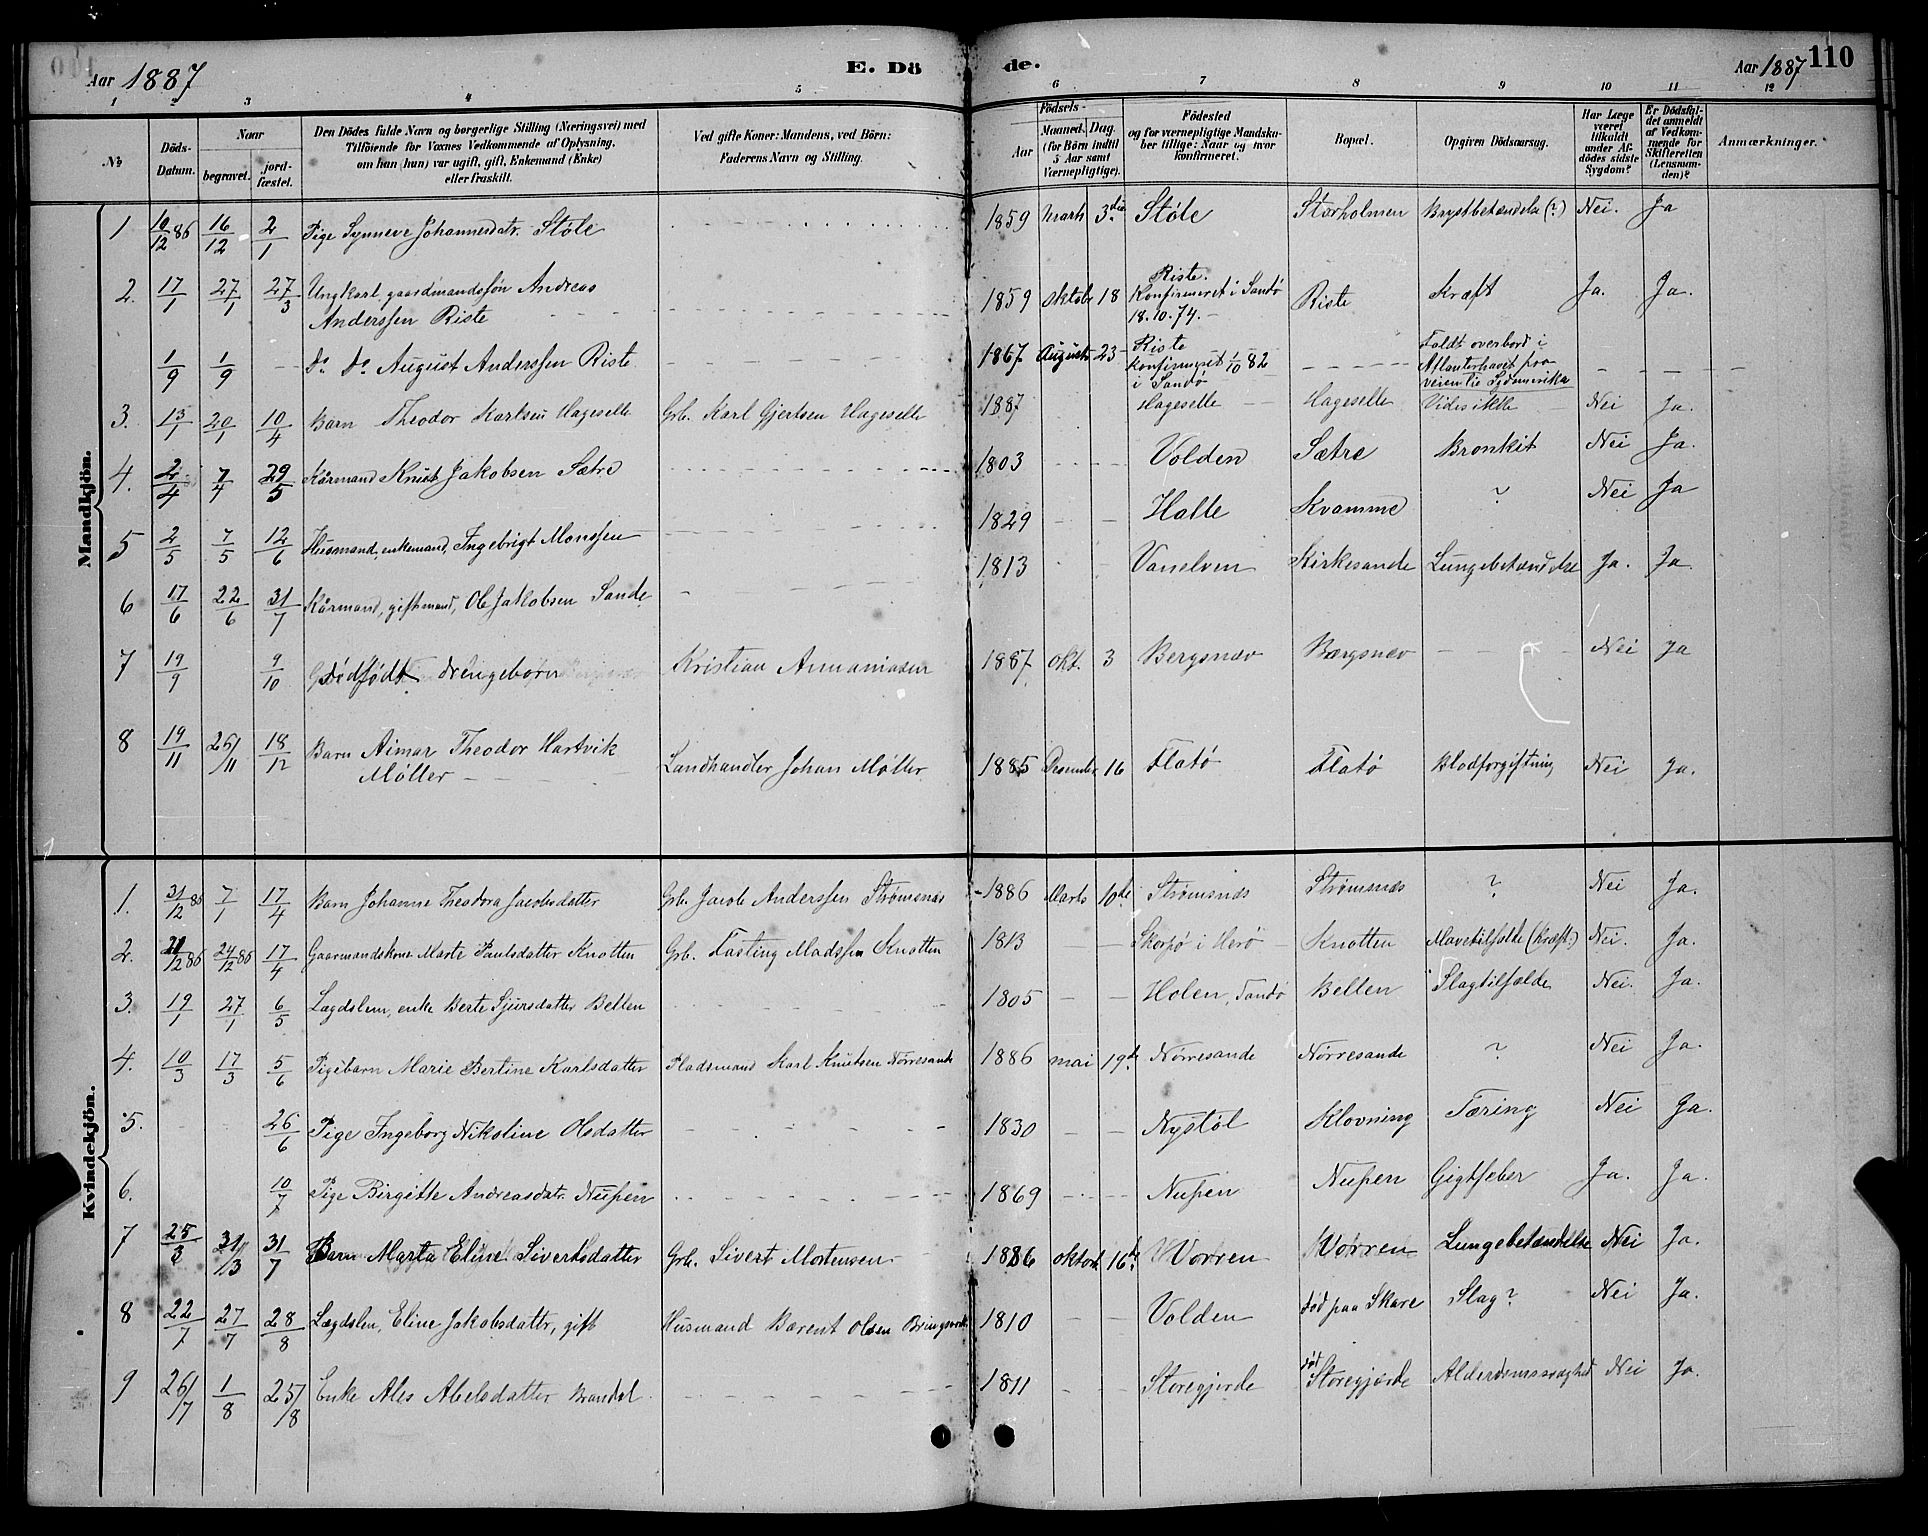 Aar 1887
E. Dö
de.
Aar 1887 110
1 2 3 4 5 6 7 8 9 10 11 12
No
Döds-Datum.
Naar
begravet.
jord-fæstet.
Den Dödes fulde Navn og borgerlige Stilling (Næringsvei) med
Tilföiende for Voxnes Vedkommende af Oplysning,
om han (hun) var ugift, gift, Enkemand (Enke)
eller fraskilt.
Ved gifte Koner: Mandens, ved Börn:
Faderens Navn og Stilling.
Födsels-
Aar
Maaned. Dag.
(for Börn indtil
5 Aar samt
Værnepligtige).
Födested
og for værnepligtige Mandska-
ber tillige: Naar og hvor
konfirmeret.
Bopæl.
Opgiven Dödsaarsag.
Har Læge
været
tilkaldt
under Af-
dödes sidste
Sygdom?
Er Dödsfal-
det anmeldt
af Vedkom-
mende for
Skifteretten
(Lensman-
den)?
Anmærkninger.
Mandkjön.
1 10/12 86 16/12 2/1 Pige Synneve Johannesdtr. Støle 1859 Marts 3die Støle Storholmen Brystbetændelse (?) Nei. Ja
2. 17/1 27/1 27/3 Ungkarl, gaardmandssøn Andreas
Anderssen Riste 1859 Oktobr 18 Riste.
Konfirmeret i Sandø
18.10.74. Riste Kræft Ja. Ja.
1/9 1/9 Do. Do. August Anderssen Riste 1867 August 23 Riste
konfirmeret 1/10 82
i Sandø Faldt overbord i
Atlanterhavet paa
veien til Sydamerika
3. 13/1 20/1 10/4 Barn Theodor Karlsen Hageselle Grb. Karl Gjertsen Hageselle 1887 Hageselle Hageselle Vides ikke Nei Ja.
4. 2/4 7/4 29/5 Kårmand Knut Jakobsen Sætre 1803 Volden Sætre Bronkit Nei Ja.
5 2/5 7/5 12/6 Husmand, enkemand, Ingebrigt Monssen 1829 Halle Kvamme ? Nei Ja
6 17/6 22/6 31/7 Kårmand, giftmand, Ole Jakobsen Sande 1813 Vanelven Kirkesande Lungebetændelse Ja. Ja.
7 19/9 9/10 Dødfødt drengebørn Kristian Annaniasen 1887 Okt. 3 Bergsnev Bergsnev Nei Ja
8 19/11 26/11 18/12 Barn Aimar Theodor Hartvik
Møller Landhandler Johan Møller 1885 Desember 16 Flatø Flatø Blodforgiftning Nei Ja.
Kvindekjön.
1. 31/12 86 7/1 17/4 Barn Johanne Theodora Jacobsdatter Grb. Jacob Anderssen Strømsnæs 1886 Marts 10de Strømsnæs Strømsnæs ? Nei Ja.
2. 21/12 86 24/12 86 17/4 Gaarmandskone Marte Paulsdatter Knotten Grb. Fasting Madssen Knotten 1813 Skorpø i Herø Knotten Mavetilfælde (Kræft.) Nei. Ja.
3. 19/1 27/1 6/5 Lægdslem, enke Berte Sjursdatter Belten 1805 Holen, Sandø Belten Slagtilfælde Nei. Ja.
4. 10/3 17/3 5/6 Pigebarn Marie Bertine Karlsdatter Pladsmand Karl Knutsen Nørresande 1886 Mai 19de Nørresande Nørresande ? Nei Ja.
5. 26/6 Pige Ingeborg Nikoline Olsdatter 1830 Nystøl Klovning Tæring Nei Ja.
6. 10/7 Pige Birgitte Andreasdatr. Nupen 1869 Nupen Nupen Gigtfeber Ja. Ja.
7 25/3 31/3 31/7 Barn Marta Eline Sivertsdatter Grb. Sivert Mortensen 1886 Oktob. 16de Worren Worren Lungebetændelse Nei Ja.
8 22/7 27/7 28/8 Lægdslem, Eline Jakobsdatter, gift Husmand Barent Olsen 1810 Volden Død paa Skare Slag? Nei Ja.
9 26/7 1/8 25/8 Enke Ales Abelsdatter Brandal 1811 Storegjerde død Storegjerde Alderdomssvaghed Nei Ja.